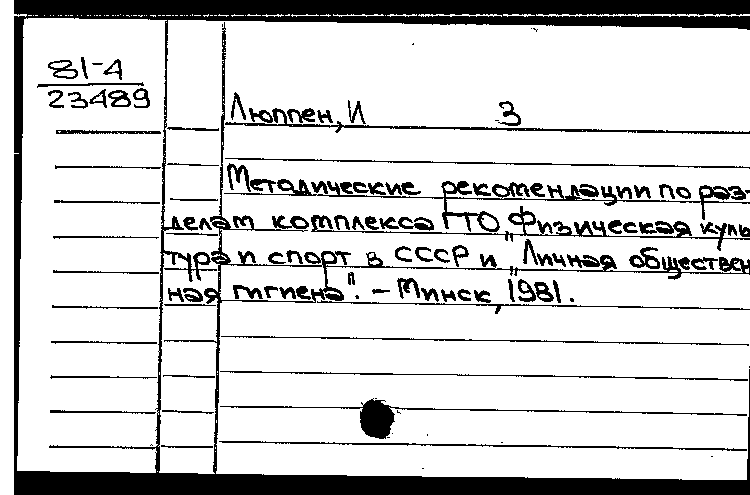 81-4
23489
Люппен, И 3
Методические рекомендации по раз-
делам комплекса ГТО „Физическая куль
тура и спорт в СССР и „Личная обществен
ная гигиена". – Минск, 1981.